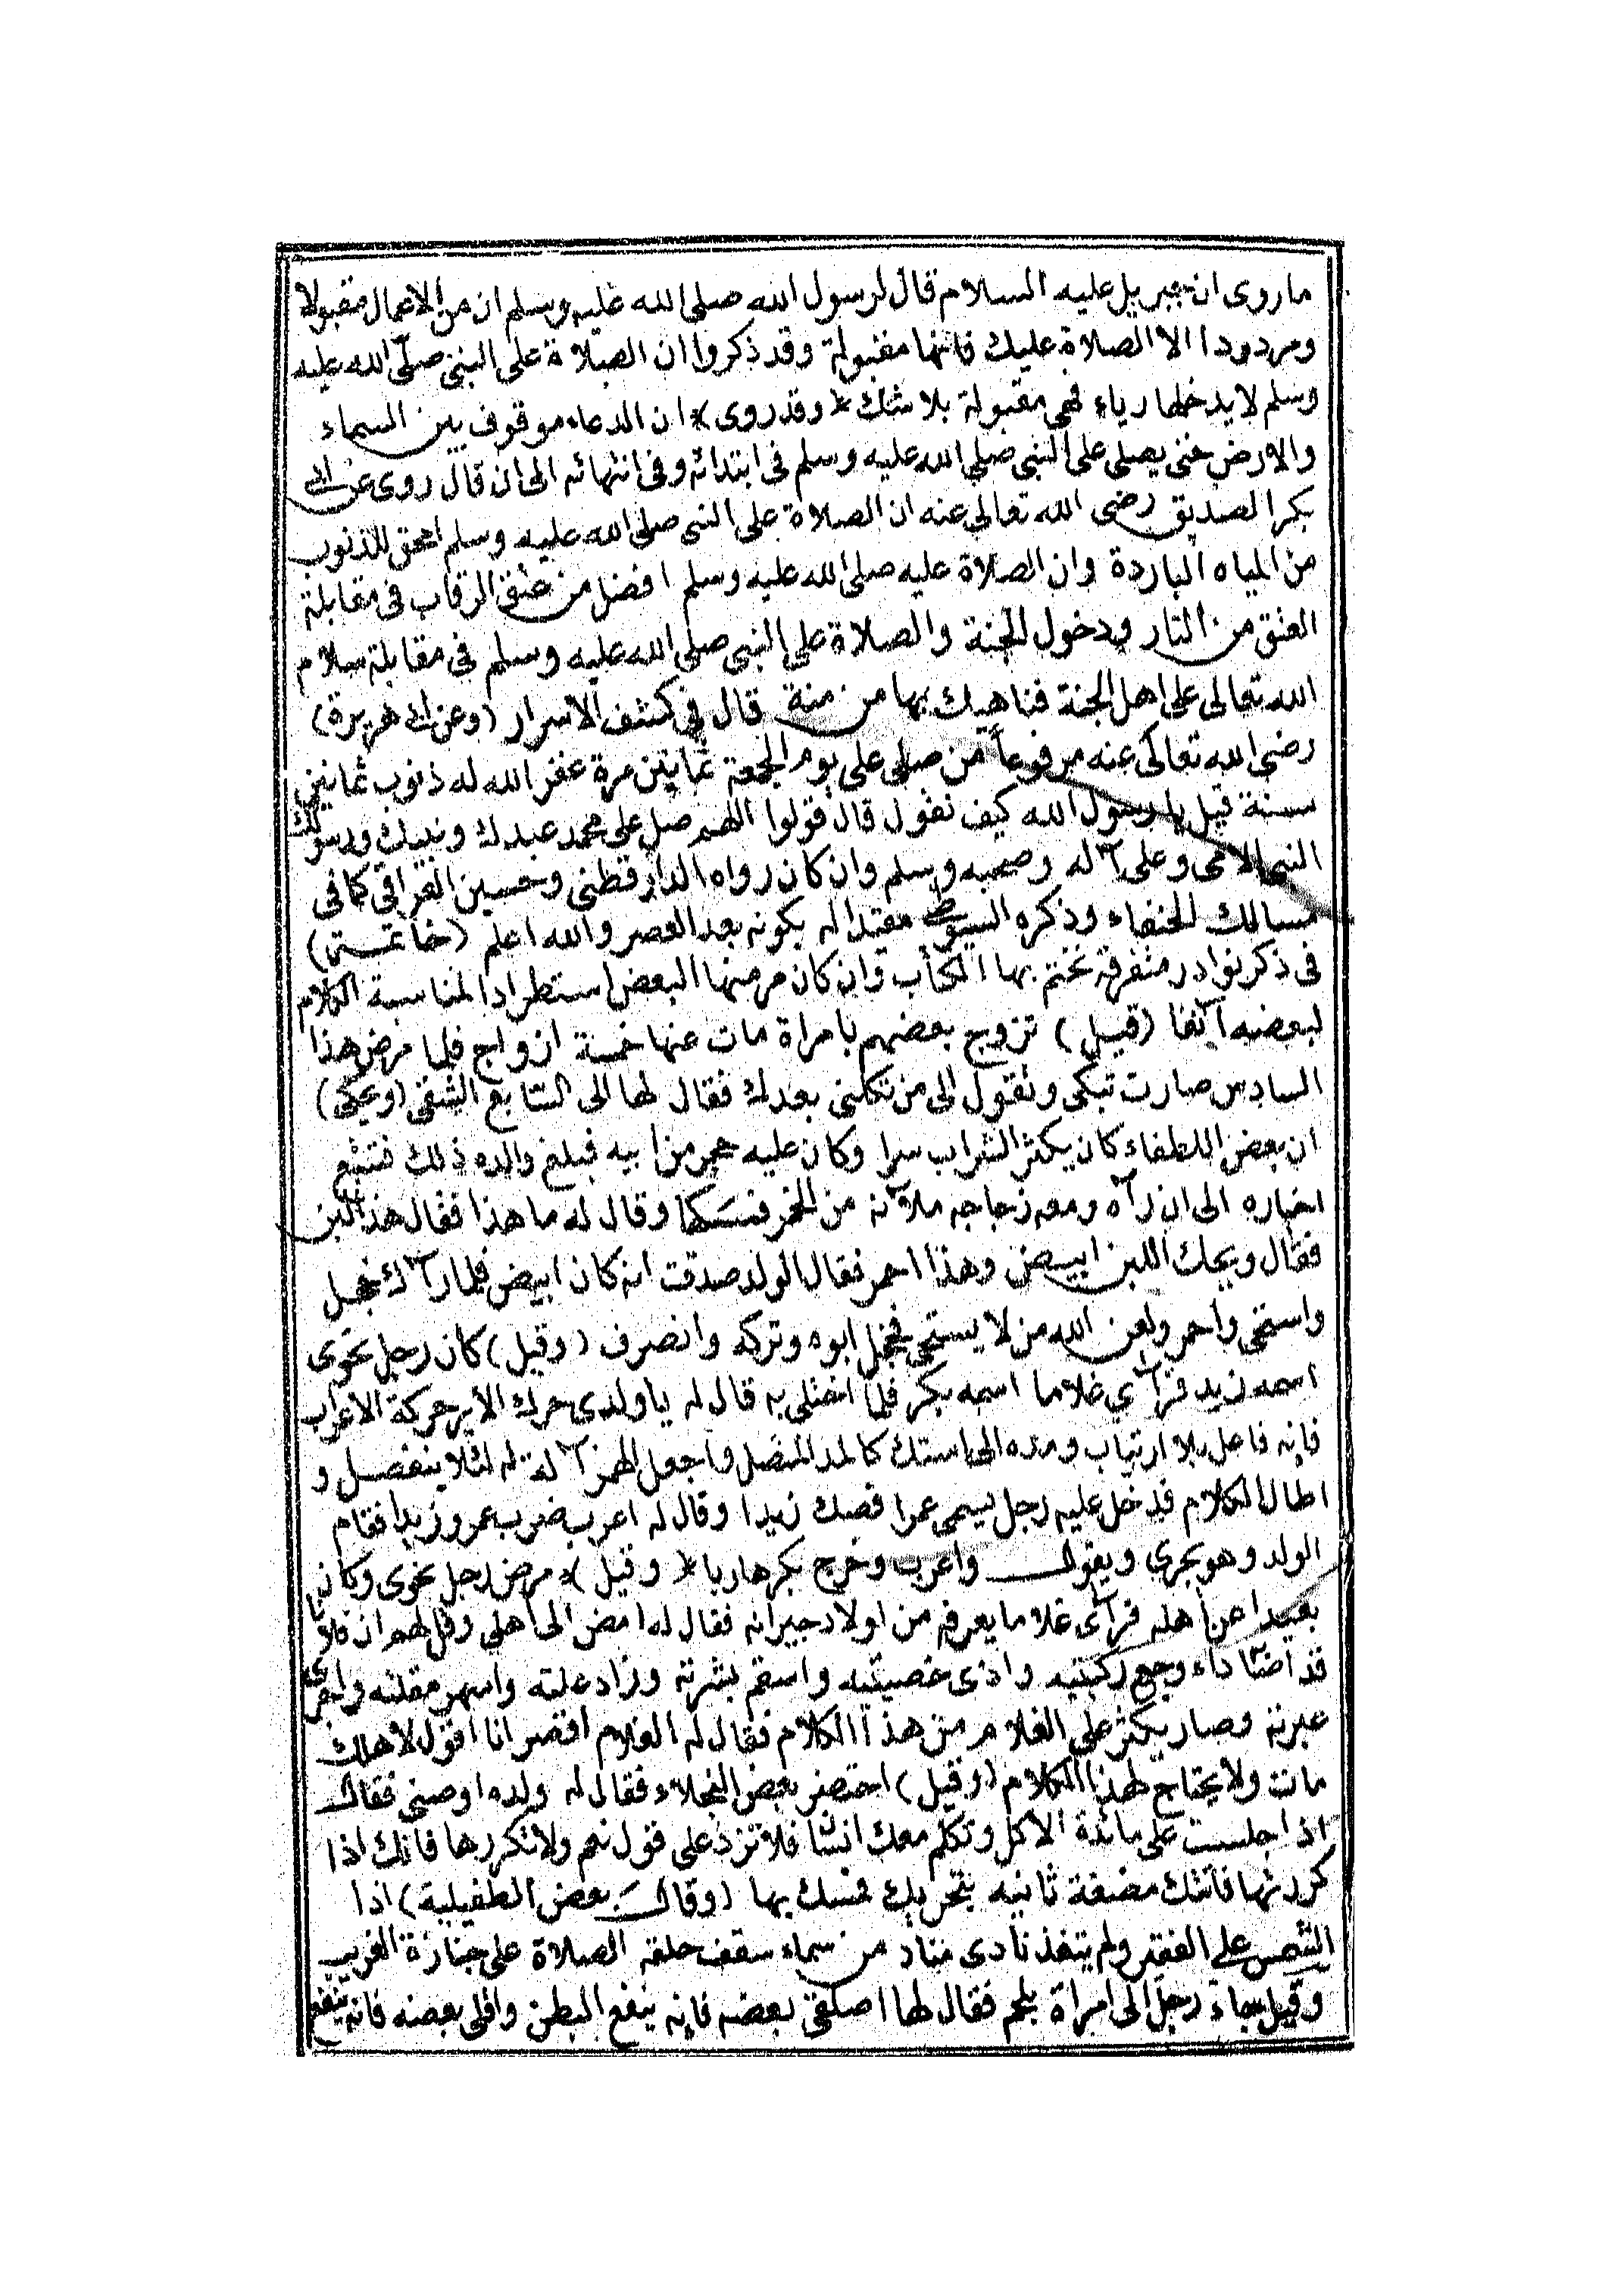 ما روى ان جبريل عليه السلام قال لرسول الله صلى الله عليه وسلم ان من الاعمال مقبولا
ومردودا الا الصلاة عليك فانها مقبولة وقد ذكروا ان الصلاة على النبي صلى الله عليه
وسلم لا يدخلها رياء فهى مقبولة بلا شك * وقد روى * ان الدعاء موقوف بين السماء
والارض حتى يصلى على النبي صلى الله عليه وسلم فى ابتدائه وفى انتهائه الى ان قال روى عن ابى
بكر الصديق رضى الله تعالى عنه ان الصلاة على النبى صلى الله عليه وسلم امحق للذنوب
من المياه الباردة وان الصلاة عليه صلى الله عليه وسلم افضل من عتق الرقاب فى مقابلة
العتق من النار ودخول الجنة والصلاة على النبى صلى الله عليه وسلم فى مقابلة سلام
الله تعالى على اهل الجنة فناهيك بها من منة قال فى كشف الاسرار (وعن ابى هريرة)
رضى الله تعالى عنه مرفوعا من صلى على يوم الجمعة ثمانين مرة غفر الله له ذنوب ثمانين
سنة قيل يا رسول الله كيف نقول قال قولوا اللهم صل على محمد عبدك ونبيك ورسولك
النبى الامى وعلى آله وصحبه وسلم وان كان رواه الدارقطنى وحسين العراقى كما فى
مسالك الحنفاء وذكره السيوطى مقيدا له بكونه بعد العصر والله اعلم (خاتمة)
فى ذكر نوادر متفرقة نختم بها الكتاب وان كان مر منها البعض استطرادا لمناسبة الكلام
لبعضه آنفا (قيل) تزوج بعضهم بامراة مات عنها خمسة ازواج فلما مرض هذا
السادس صارت تبكى وتقول الى من تكلنى بعدك فقال لها الى السابع الشقى (ويحكى)
ان بعض اللطفاء كان يكثر الشراب سرا وكان عليه حجر من ابيه فبلغ والده ذلك فتتبع
اخباره الى ان رآه ومعه زجاجه ملآنه من الخمر فمسكها وقال له ما هذا فقال هذا لبن
فقال ويحك اللبن ابيض وهذا احمر فقال الولد صدقت انه كان ابيض فلما رآك خجل
واستحى واحمر ولعن الله من لا يستحى فخجل ابوه وتركه وانصرف (وقيل) كان رجل نحوى
اسمه زيد فرآى غلاما اسمه بكر فلما اختلى به قال له يا ولدى حرك الأير حركة الاعراب
فانه فاعل بلا ارتياب ومده الى استك كالمد المتصل واجعل الهمز آلة له لئلا ينفصل و
اطال الكلام فدخل عليه رجل يسمى عمرا فصك زيدا وقال له اعرب ضرب عمرو زيدا فقام
الولد وهو يجرى ويقول واعرب وخرج بكر هاربا * وقيل * مرض رجل نحوى وكان
بعيدا عن اهله فرآى غلاما يعرفه من اولاد جيرانه فقال له امض الى اهلى وقل لهم ان فلانا
قد اضناه داء وجع ركبتيه واذى خصيتيه واسقم بشرته وزاد علته واسهر مقلته واجرى
عبرته وصار يكثر على الغلام من هذا الكلام فقال له الغلام اقصر انا اقول لاهلك
مات ولا يحتاج لهذا الكلام (وقيل) احتضر بعض البخلاء فقال له ولده اوصنى فقال
اذا جلست على مائدة الاكل وتكلم معك انسان فلا تزد على قول نعم ولا تكررها فانك اذا
كررتها فاتتك مضغة ثانيه بها (وقال بعض الطفيلية) اذا
على الفقير ولم يتغذ نادى مناد من سماء سقف حلقه الصلاة على جنازة الغريب
وقيل جاء رجل الى امراة بلحم فقال لها اصلقى بعضه فانه ينفع البطن واقلى بعضه فانه ينفع